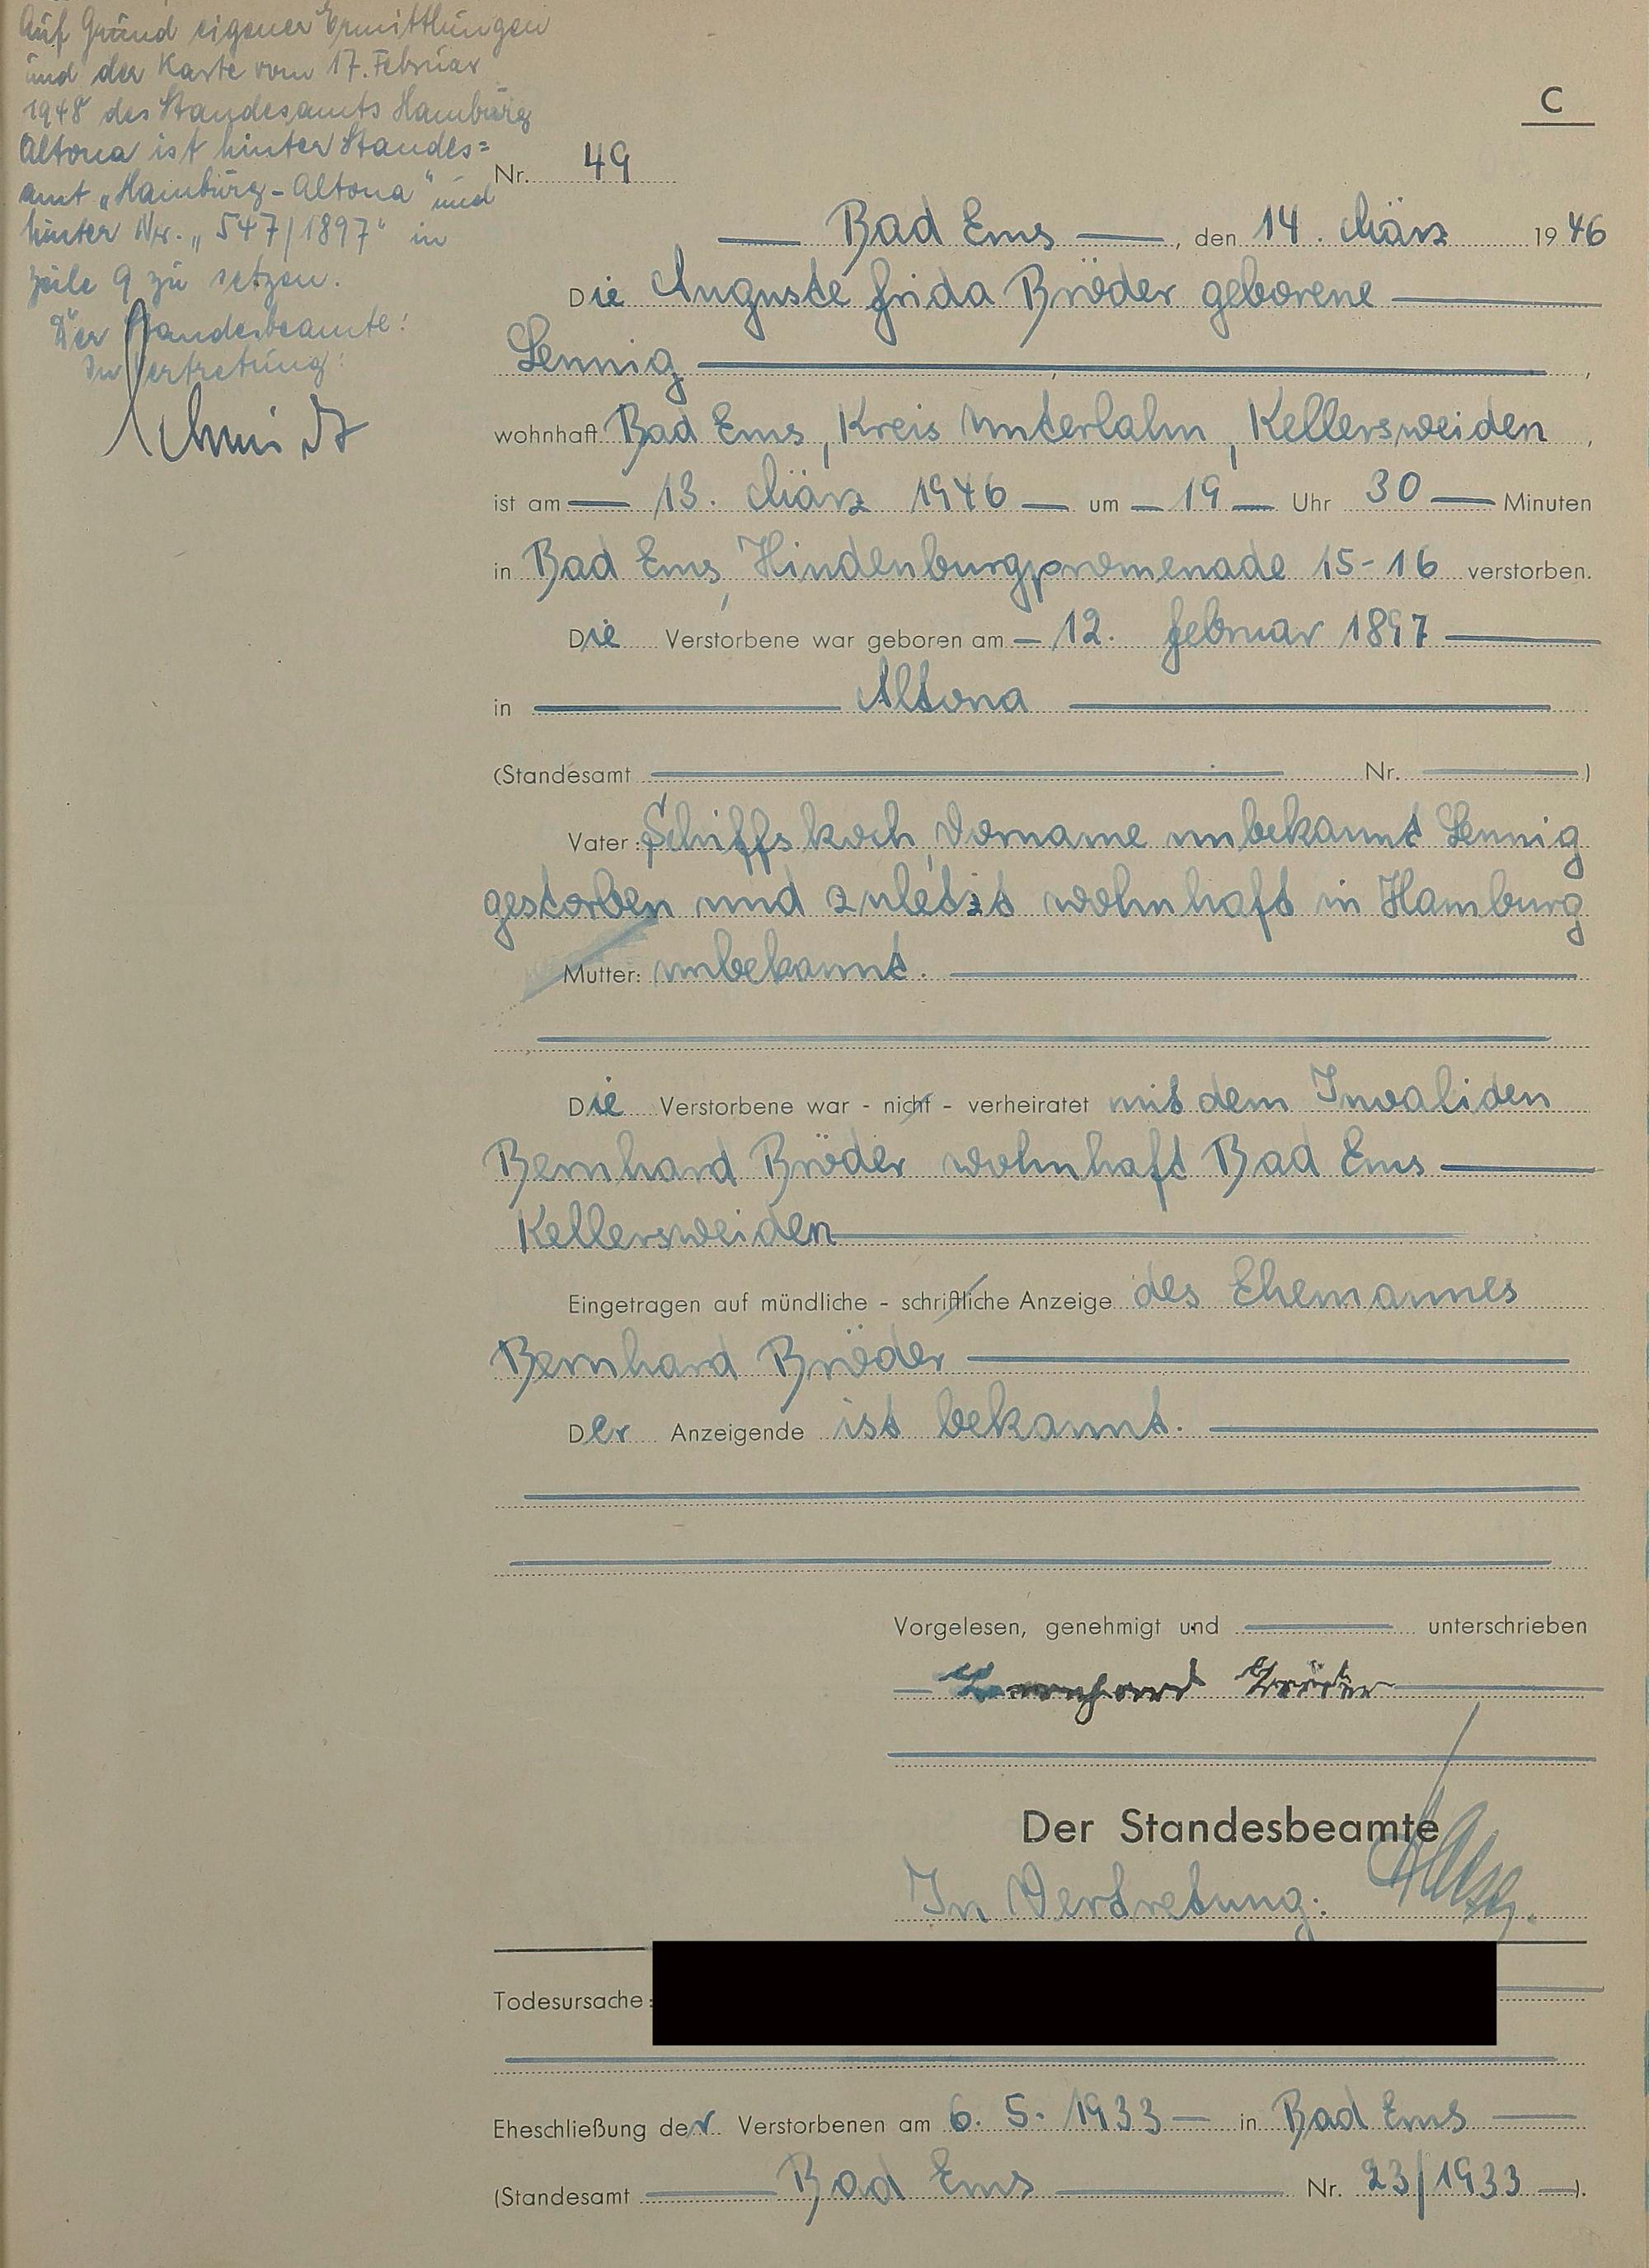 Auf Grund eigener Ermittlungen
und der Karte vom 17. Februar
1948 des Standesamts Hamburg
Altona ist hinter Standes=
amt „Hamburg-Altona" und
hinter Nr. „547/1897" in
Zeile 9 zu setzen.
Der Standesbeamte:
In Vertretung:
Schmidt
C
Nr. 49
Bad Ems, den 14. März 1946
Die Auguste Frida Bröder geborene
Lennig,
wohnhaft Bad Ems, Kreis Unterlahn, Kellersweiden,
ist am 13. März 1946 um 19 Uhr 30 Minuten
in Bad Ems, Hindenburgpromenade 15-16 verstorben.
Die Verstorbene war geboren am 12. Februar 1897
in Altona
(Standesamt Nr. )
Vater: Schiffskoch, Vorname unbekannt Lennig
gestorben und zuletzt wohnhaft in Hamburg
Mutter: unbekannt.
Die Verstorbene war - nicht - verheiratet mit dem Invaliden
Bernhard Bröder wohnhaft Bad Ems
Kellersweiden
Eingetragen auf mündliche - schriftliche Anzeige des Ehemannes
Bernhard Bröder
Der Anzeigende ist bekannt.
Vorgelesen, genehmigt und unterschrieben
Bernhard Bröder
Der Standesbeamte
In Vertretung:
Todesursache:
Eheschließung der Verstorbenen am 6. 5. 1933 in Bad Ems
(Standesamt Bad Ems Nr. 23/1933 ).